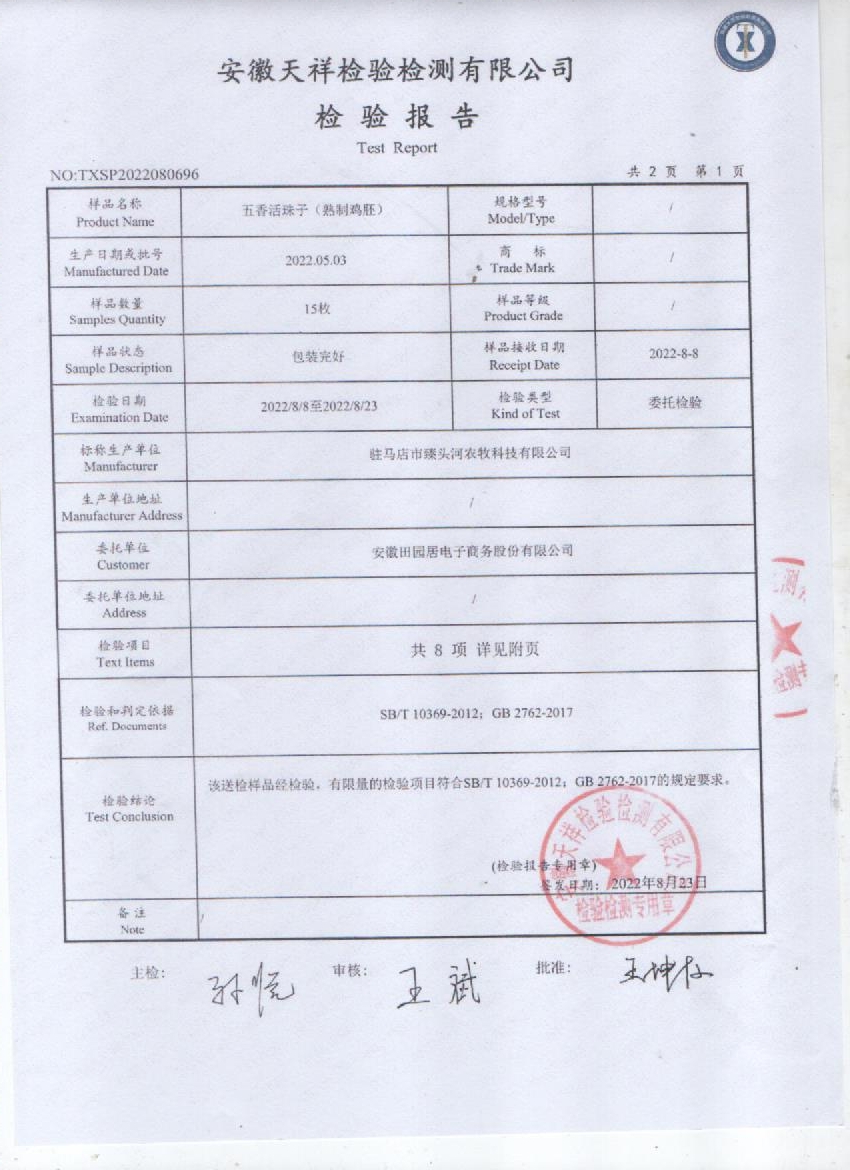 安徽天祥检验检测有限公司
检验报告
Test Report
NO:TXSP2022080696
共 2 页 第 1 页
样品名称
Product Name
五香活珠子（熟制鸡胚）
规格型号
Model/Type
/
生产日期或批号
Manufactured Date
2022.05.03
商 标
Trade Mark
/
样品数量
Samples Quantity
15枚
样品等级
Product Grade
/
样品状态
Sample Description
包装完好
样品接收日期
Receipt Date
2022-8-8
检验日期
Examination Date
2022/8/8至2022/8/23
检验类型
Kind of Test
委托检验
标称生产单位
Manufacturer
驻马店市臻头河农牧科技有限公司
生产单位地址
Manufacturer Address
/
委托单位
Customer
安徽田园居电子商务股份有限公司
委托单位地址
Address
/
检验项目
Text Items
共 8 项 详见附页
检验和判定依据
Ref. Documents
SB/T 10369-2012；GB 2762-2017
检验结论
Test Conclusion
该送检样品经检验，有限量的检验项目符合SB/T 10369-2012；GB 2762-2017的规定要求。
(检验报告专用章)
签发日期：2022年8月23日
安徽天祥检验检测有限公司
检验检测专用章
备注
Note
/
主检：
审核：王斌
批准：